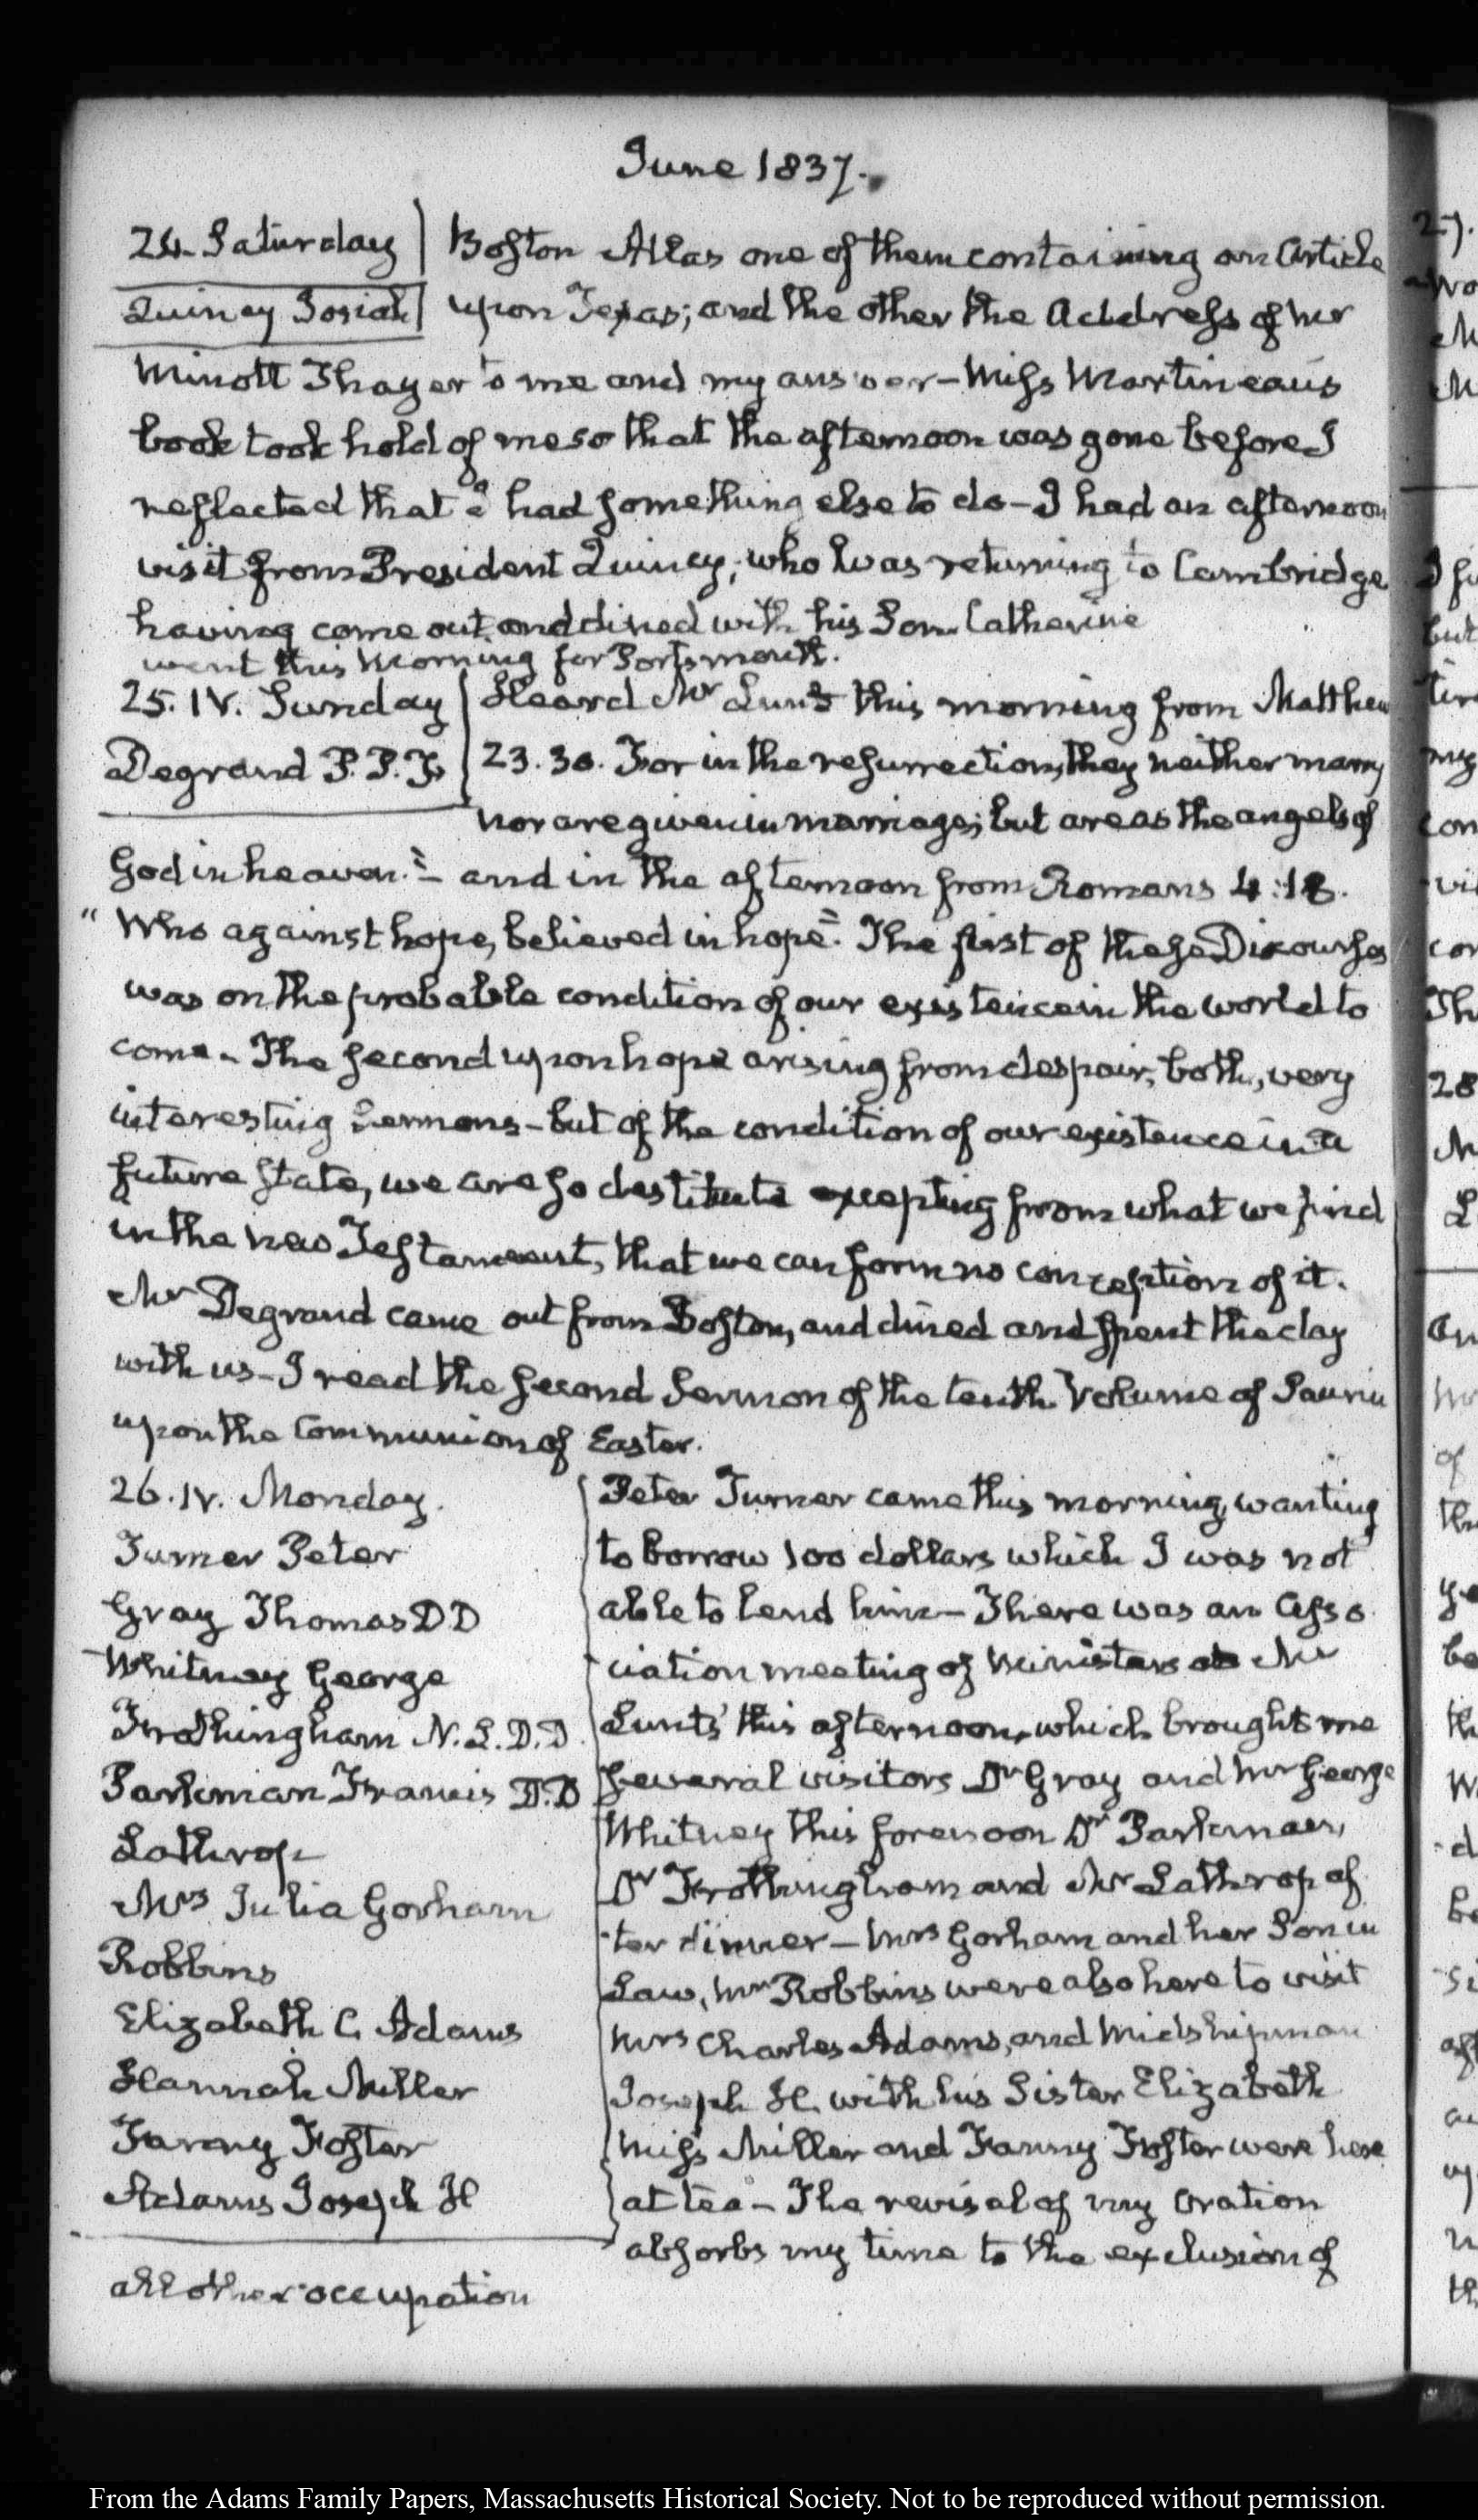 June 1837.
24. Saturday
Quincy Josiah
Boston Atlas one of them containing an Article
upon Texas; and the other the Address of Mr
Minott Thayer to me and my answer – Miss Martineau's
book took hold of me so that the afternoon was gone before I
reflected that I had something else to do – I had an afternoon
visit from President Quincy, who was returning to Cambridge
having come out and dined with his Son. Catherine
went this Morning for Portsmouth.
25. IV. Sunday
Degrand P. P. F.
Heard Mr Lunt this morning from Matthew
23. 30. For in the resurrection, they neither marry
nor are given in marriage; but are as the angels of
God in heaven." – and in the afternoon from Romans 4:18.
"Who against hope, believed in hope". The first of these Discourses
was on the probable condition of our existence in the world to
come – The second upon hope arising from despair, both, very
interesting Sermons – but of the condition of our existence in a
future state, we are so destitute excepting from what we find
in the new Testament, that we can form no conception of it.
Mr Degrand came out from Boston, and dined and spent the day
with us – I read the second Sermon of the tenth Volume of Saurin
upon the Communion of Easter.
26. IV. Monday.
Turner Peter
Gray Thomas DD
Whitney George
Frothingham N. L. D.D.
Parkman Francis D.D
Lothrop
Mrs Julia Gorham
Robbins
Elizabeth C. Adams
Hannah Miller
Fanny Foster
Adams Joseph H
Peter Turner came this morning, wanting
to borrow 100 dollars which I was not
able to lend him – There was an Asso
ciation meeting of Ministers at Mr
Lunt's this afternoon, which brought me
several visitors Dr Gray and Mr George
Whitney this forenoon Dr Parkman,
Dr Frothingham and Mr Lothrop af
ter dinner – Mrs Gorham and her Son in
Law, Mr Robbins were also here to visit
Mrs Charles Adams, and Midshipman
Joseph H. with his Sister Elizabeth
Miss Miller and Fanny Foster were here
at tea – The revisal of my Oration
absorbs my time to the exclusion of
all other occupation
From the Adams Family Papers, Massachusetts Historical Society. Not to be reproduced without permission.